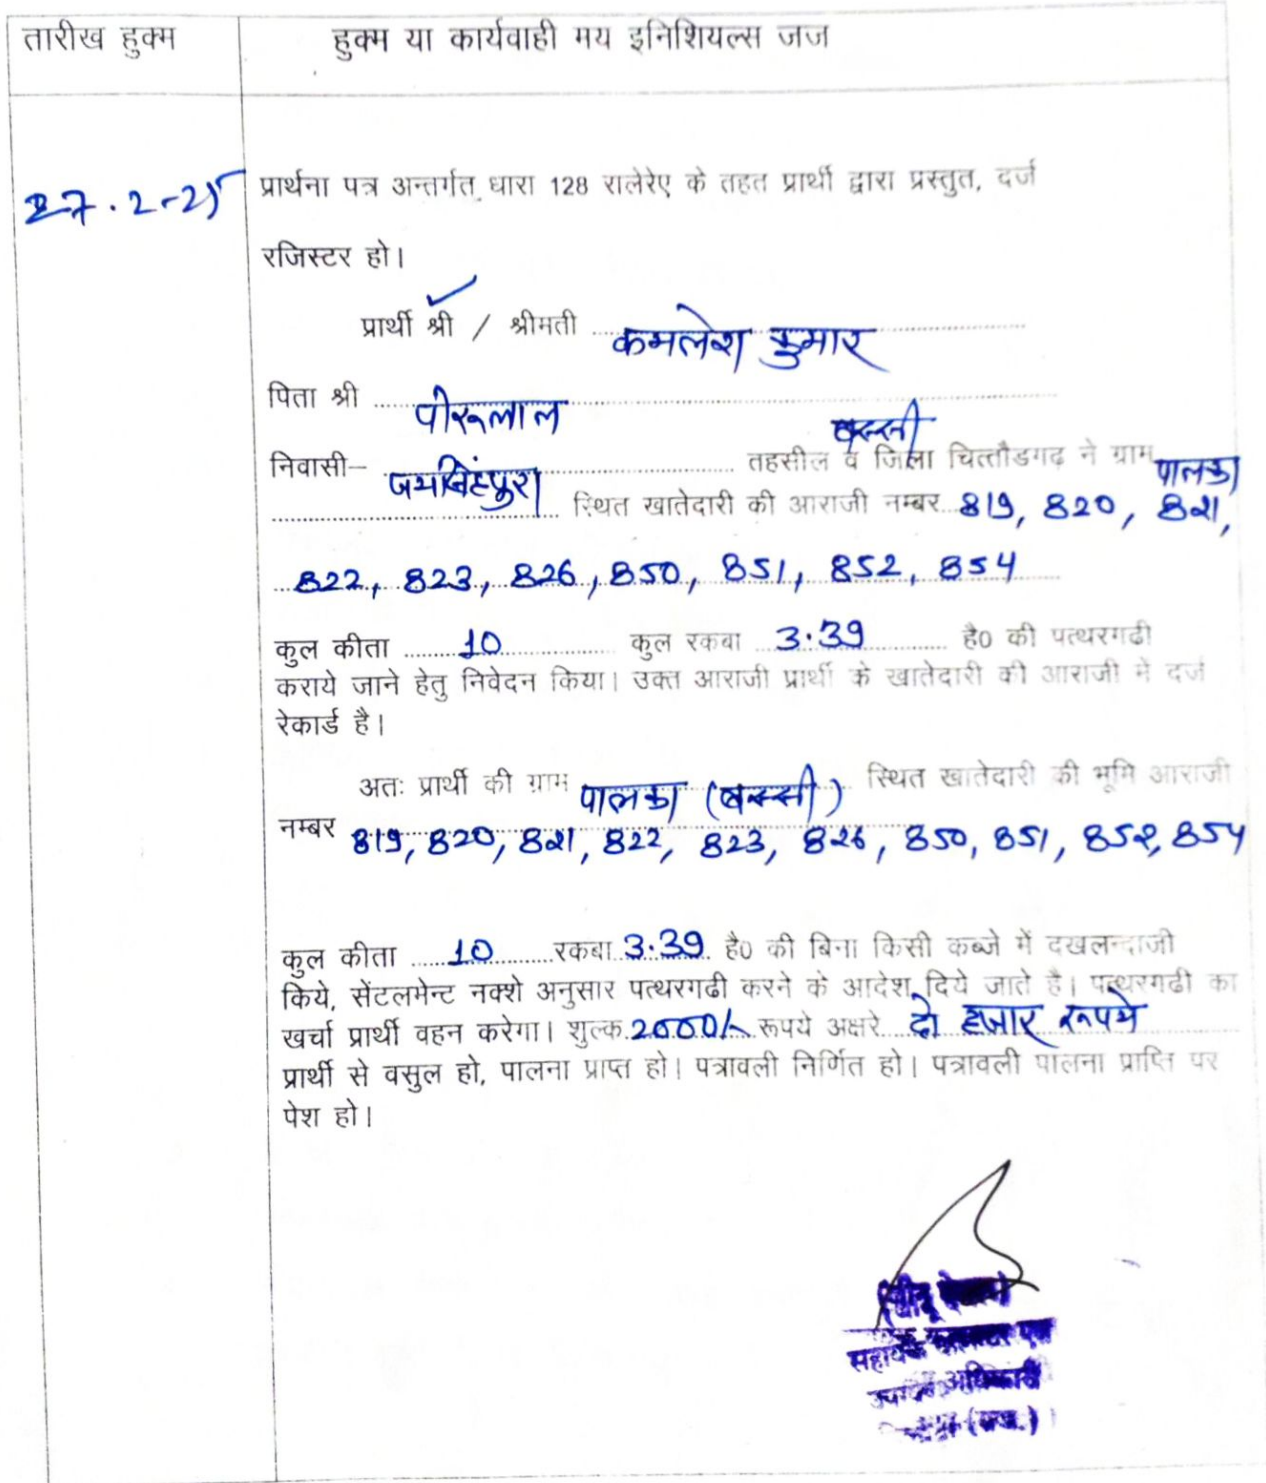 तारीख हुक्म	हुक्म या कार्यवाही मय इनिशियल्स जज
27.2-25	प्रार्थना पत्र अन्तर्गत धारा 128 रालेरेए के तहत प्रार्थी द्वारा प्रस्तुत, दर्ज
रजिस्टर हो।
प्रार्थी श्री / श्रीमती कमलेश कुमार
पिता श्री पीरूलाल
निवासी– जयसिंहपुरा तहसील बस्सी व जिला चित्तौडगढ़ ने ग्राम पालका
स्थित खातेदारी की आराजी नम्बर 819, 820, 821,
822, 823, 826, 850, 851, 852, 854
कुल कीता 10 कुल रकबा 3.39 है0 की पत्थरगढी
कराये जाने हेतु निवेदन किया। उक्त आराजी प्रार्थी के खातेदारी की आराजी में दर्ज
रेकार्ड है।
अतः प्रार्थी की ग्राम पालका (बस्सी) स्थित खातेदारी की भूमि आराजी
नम्बर 819, 820, 821, 822, 823, 826, 850, 851, 852, 854
कुल कीता 10 रकबा 3.39 है0 की बिना किसी कब्जे में दखलन्दाजी
किये, सेंटलमेन्ट नक्शे अनुसार पत्थरगढी करने के आदेश दिये जाते है। पत्थरगढी का
खर्चा प्रार्थी वहन करेगा। शुल्क 2000/- रूपये अक्षरे दो हजार रूपये
प्रार्थी से वसुल हो, पालना प्राप्त हो। पत्रावली निर्णित हो। पत्रावली पालना प्राप्ति पर
पेश हो।
सहायक कलक्टर एवं
अधिकारी
(राज.)